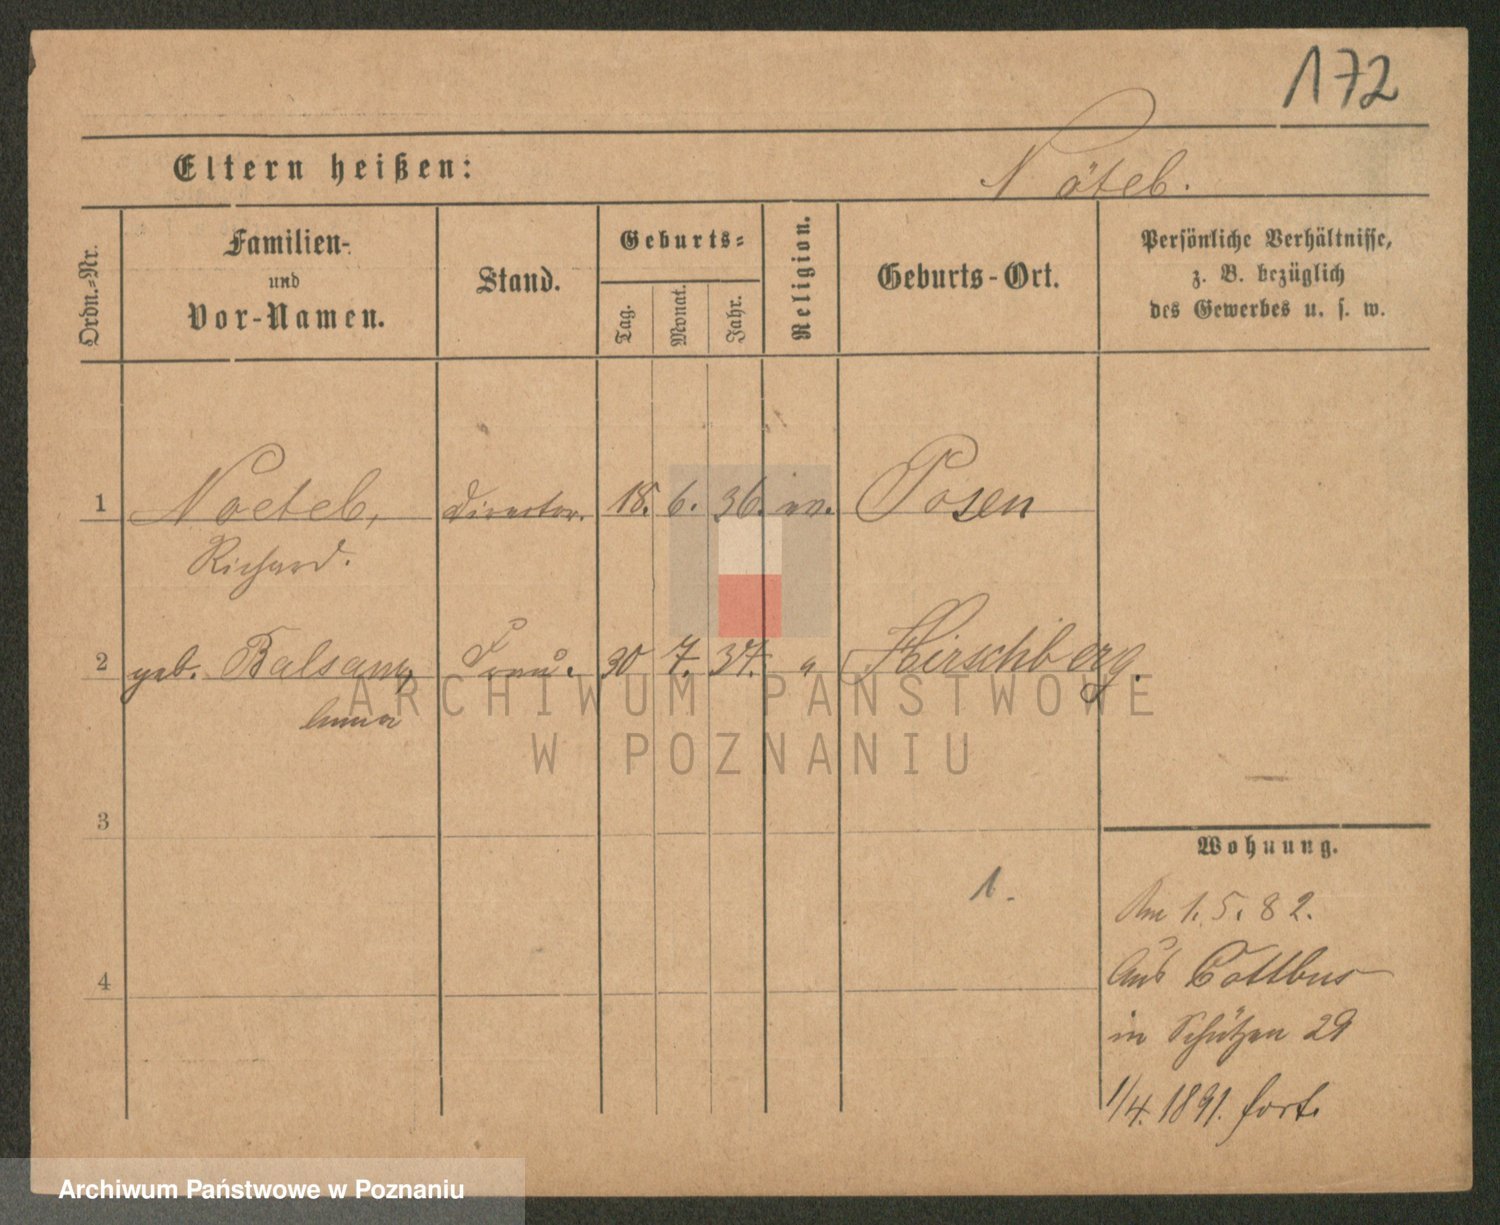 172
Eltern heißen:
Nöteb.
Ordn.-Nr.
Familien-
und
Vor-Namen.
Stand.
Geburts-
Tag.
Monat.
Jahr.
Religion.
Geburts-Ort.
Persönliche Verhältnisse,
z. B. bezüglich
des Gewerbes u. s. w.
1 Noeteb, Director. 18. 6. 36. ev. Posen
Richard.
2 geb. Balsam, Frau. 30 7. 37. " Hirschberg.
Anna
ARCHIWUM PAŃSTWOWE
W POZNANIU
3
Wohnung.
1.
Am 1. 5. 82.
Aus Cottbus
4
in Schützen 29
1/4. 1891. fort.
Archiwum Państwowe w Poznaniu